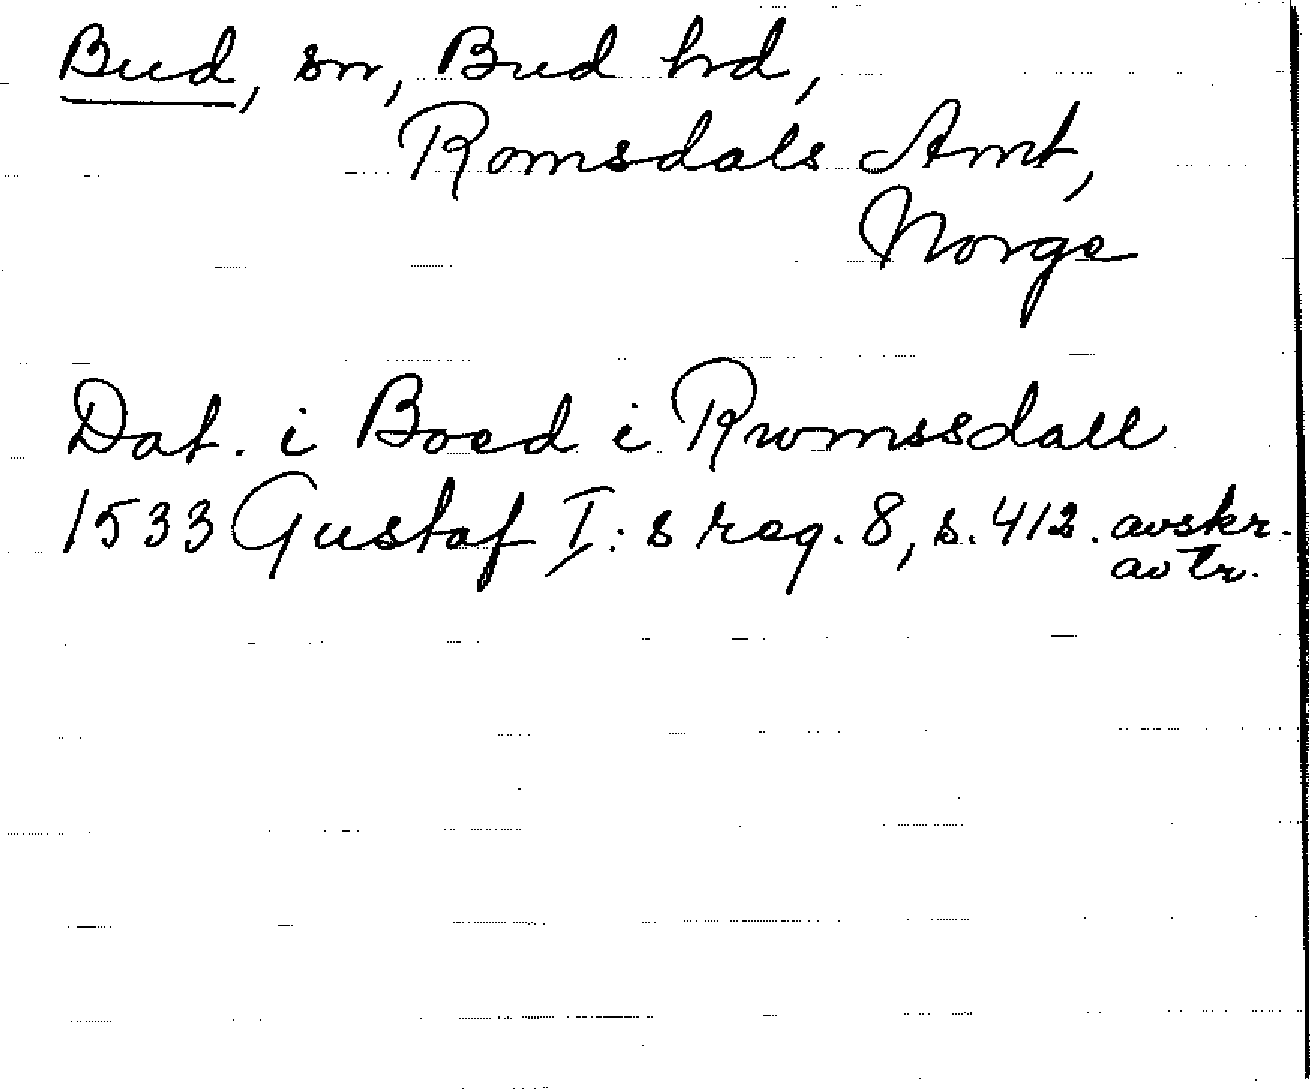 Bud, sn, Bud hd,
Romsdals Amt,
Norge
Dat. i Boed i Rwmssdall
1533 Gustaf I:s reg. 8, s. 412. avskr.
av tr.